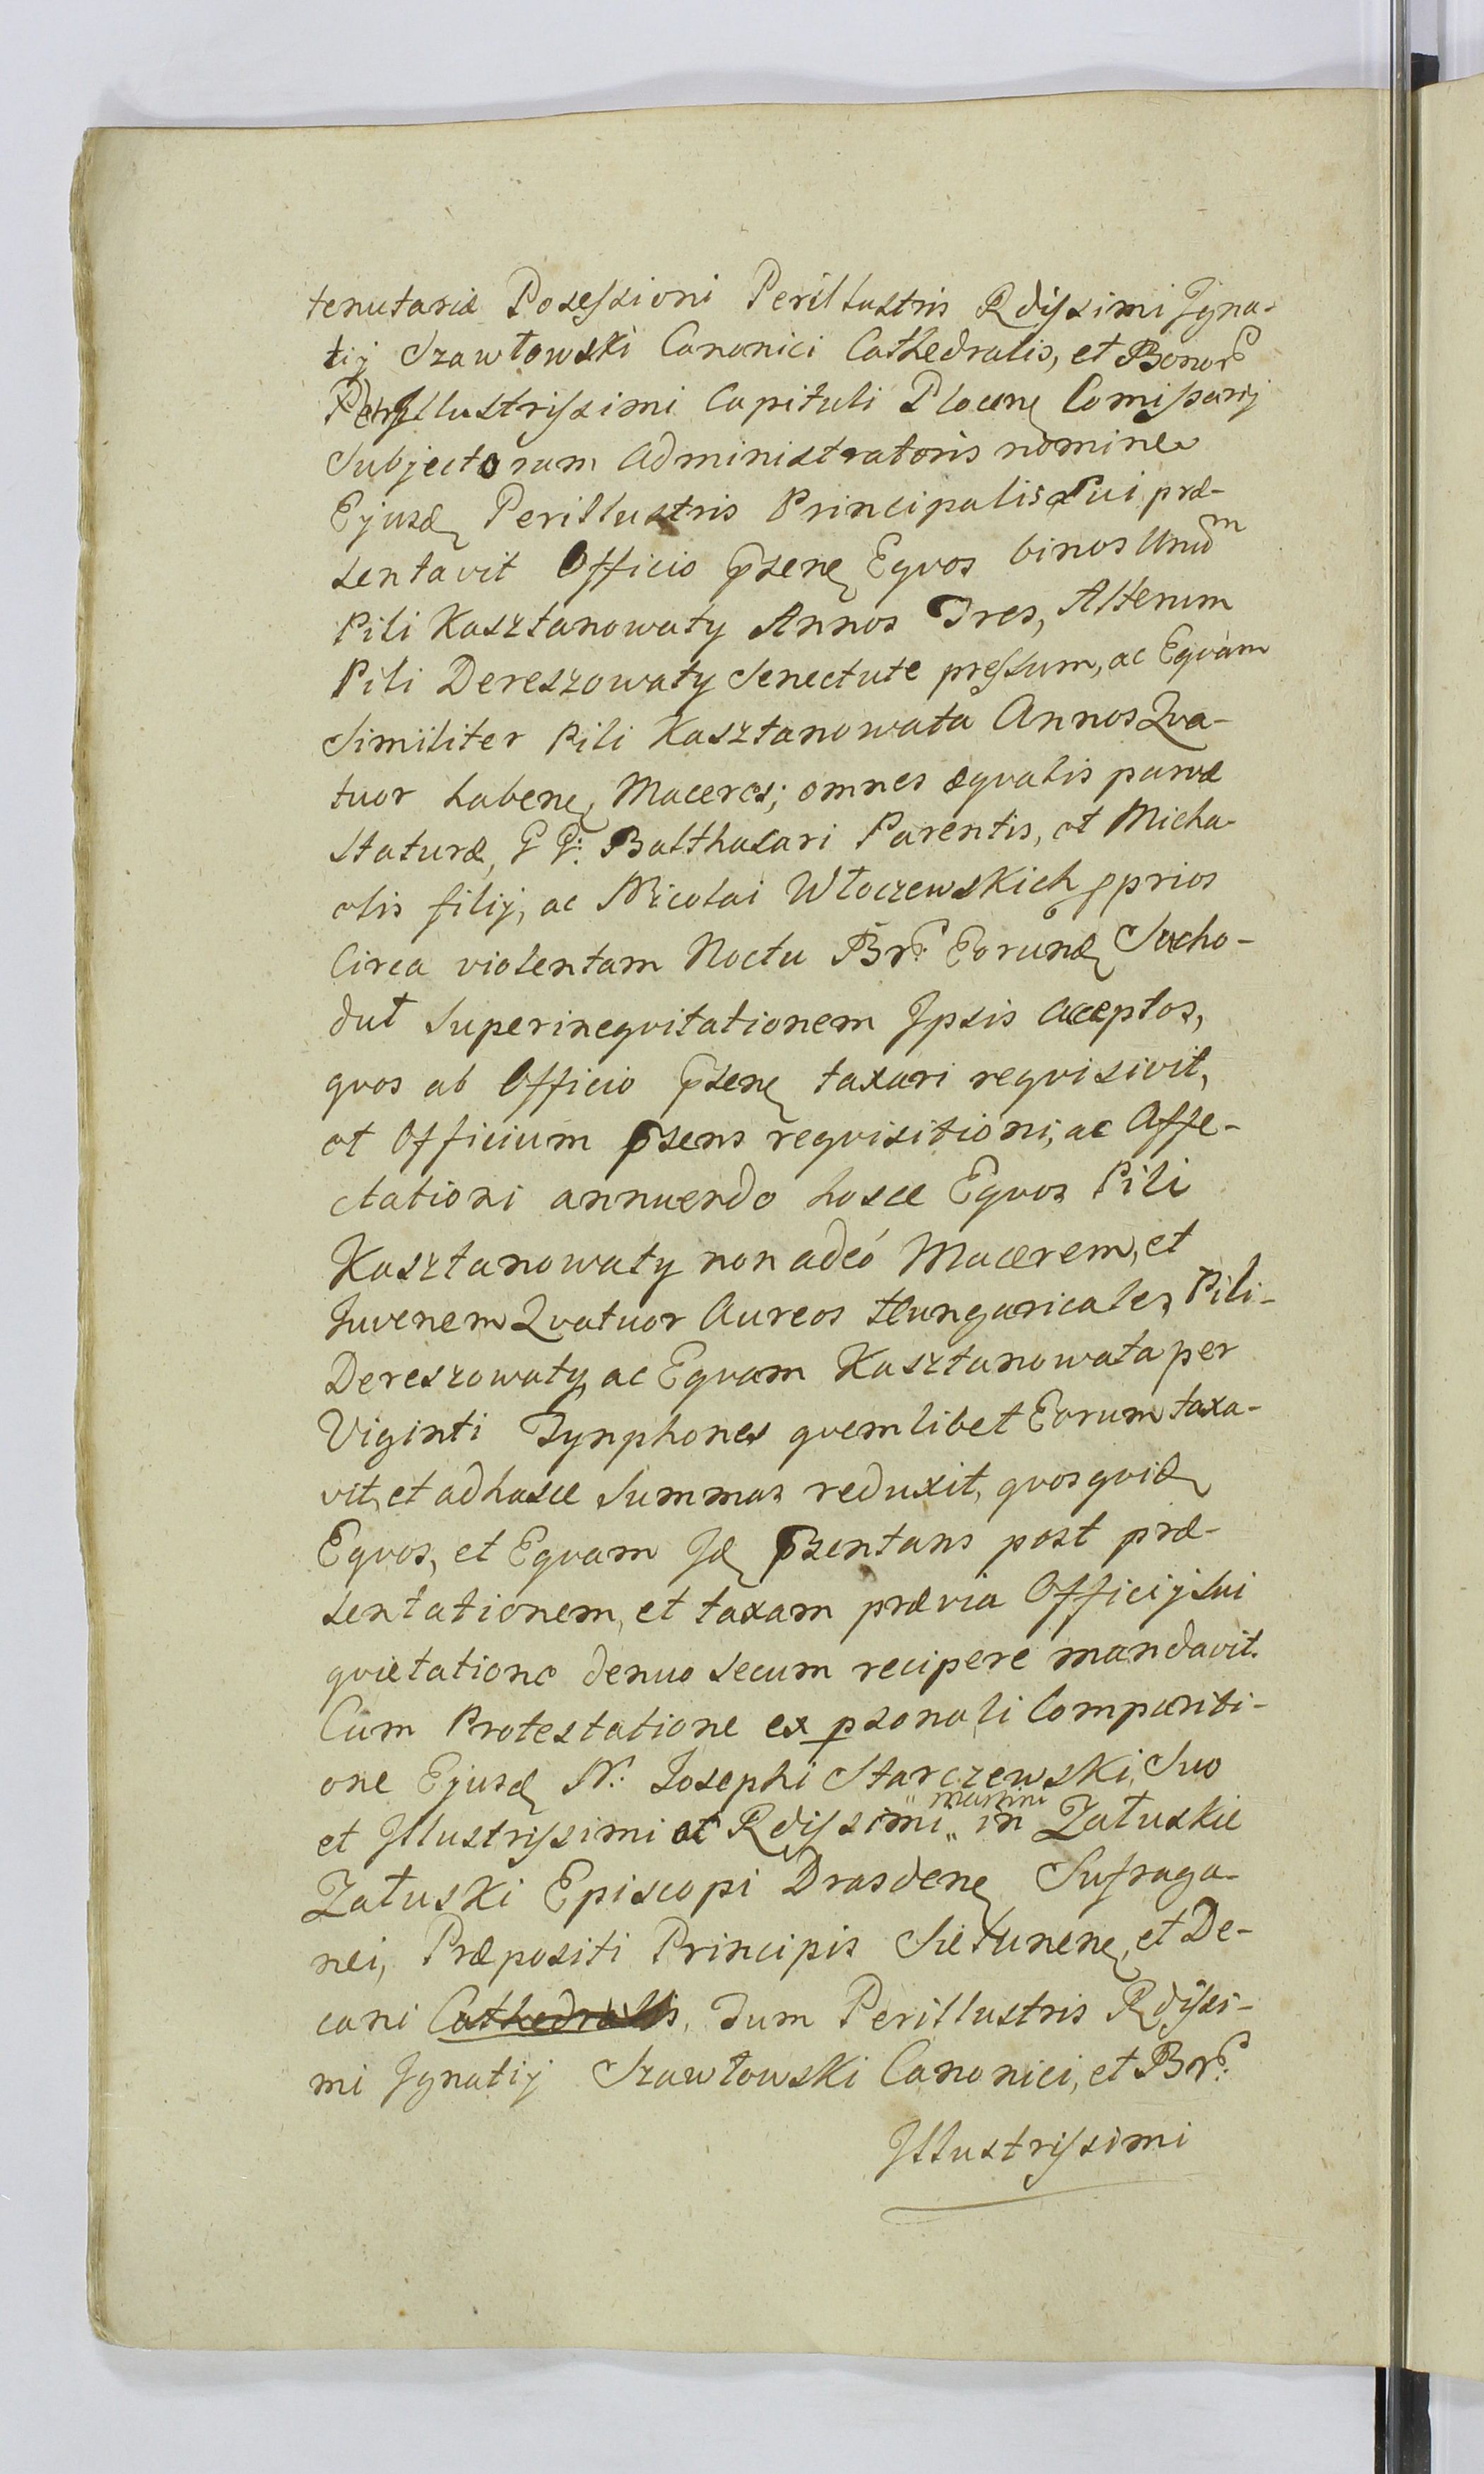 tenutariæ Posessioni Perillustris Rdissimi Igna-
tij Szawłowski Canonici Cathedralis, et Bonorũ
PerIllustrissimi Capituli Plocen Comissarij
Subjectorum Administratoris nomine
Ejusd Perillustris Principalis Sui præ-
sentavit Officio psen Equos binos Unũm
Pili Kasztanowaty Annos Tres, Alterum
Pili Dereszowaty Senectute pressum, ac Equam
Similiter Pili Kasztanowata Annos Qua-
tuor haben, Maceres; omnes æqualis parvæ
Staturæ, G G: Balthasari Parentis, et Micha-
elis filij, ac Nicolai Włoczewskich pprios
Circa violentam Noctu Br: Eorund Sucho-
duł Superinequitationem Ipsis acceptos,
quos ab Officio psen taxari requisivit,
et Officium psens requisitioni, ac Affe-
ctationi annuendo hosce Equos Pili
Kasztanowaty non adeó Macerem, et
Juvenem Quatuor Aureos Hungaricales, Pili
Dereszowaty, ac Equam Kasztanowata per
Viginti Tynphones quemlibet Eorum taxa-
vit, et ad hasce Summas reduxit, quos quid
Equos, et Equam Id psentans post præ-
sentationem, et taxam prævia Officij sui
quietatione denuo secum recipere mandavit.
Cum Protestatione ex psonali Compariti-
one Ejusd N: Josephi Starczewski, Suo
et Illustrissimi et Rdissimi „ Martini „ in Załuskie
Załuski Episcopi Drasden Sufraga-
nei, Præpositi Principis Sielunen, et De-
cani Cathedralis, dum Perillustris Rdissi-
mi Ignatij Szawłowski Canonici, et Br:
Illustrissimi